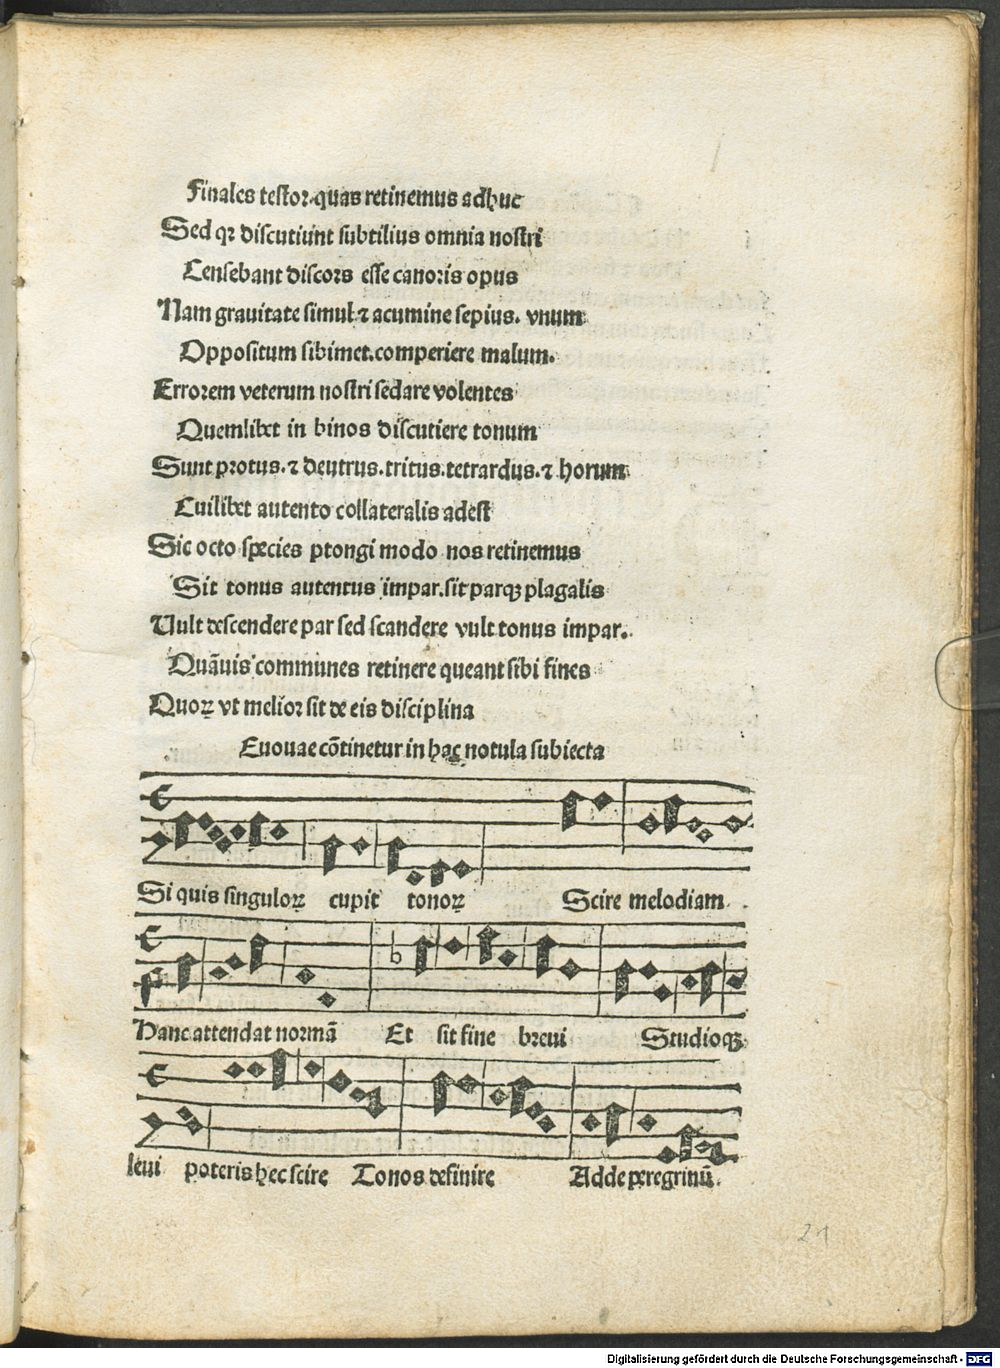 Finales testor.quas retinemus adhuc
Sed qꝛ discutiunt subtilius omnia nostri
Censebant discors esse canoris opus
Nam grauitate simul ⁊ acumine sepius. vnum
Oppositum sibimet.comperiere malum.
Errorem veterum nostri sedare volentes
Quemlibet in binos discutiere tonum
Sunt protus.⁊ deutrus.tritus.tetrardus.⁊ horum
Cuilibet autento collateralis adest
Sic octo species ptongi modo nos retinemus
Sit tonus autentus impar.sit parqꝫ plagalis
Uult descendere par sed scandere vult tonus impar.
Quāuis communes retinere queant sibi fines
Quoꝝ vt melior sit de eis disciplina
Euouae cōtinetur in hac notula subiecta
Si quis singuloꝝ cupit tonoꝝ Scire melodiam
b
Hanc attendat normā Et sit fine breui Studioqꝫ
leui poteris hec scire Tonos definire Adde peregrinū.
21
Digitalisierung gefördert durch die Deutsche Forschungsgemeinschaft - DFG